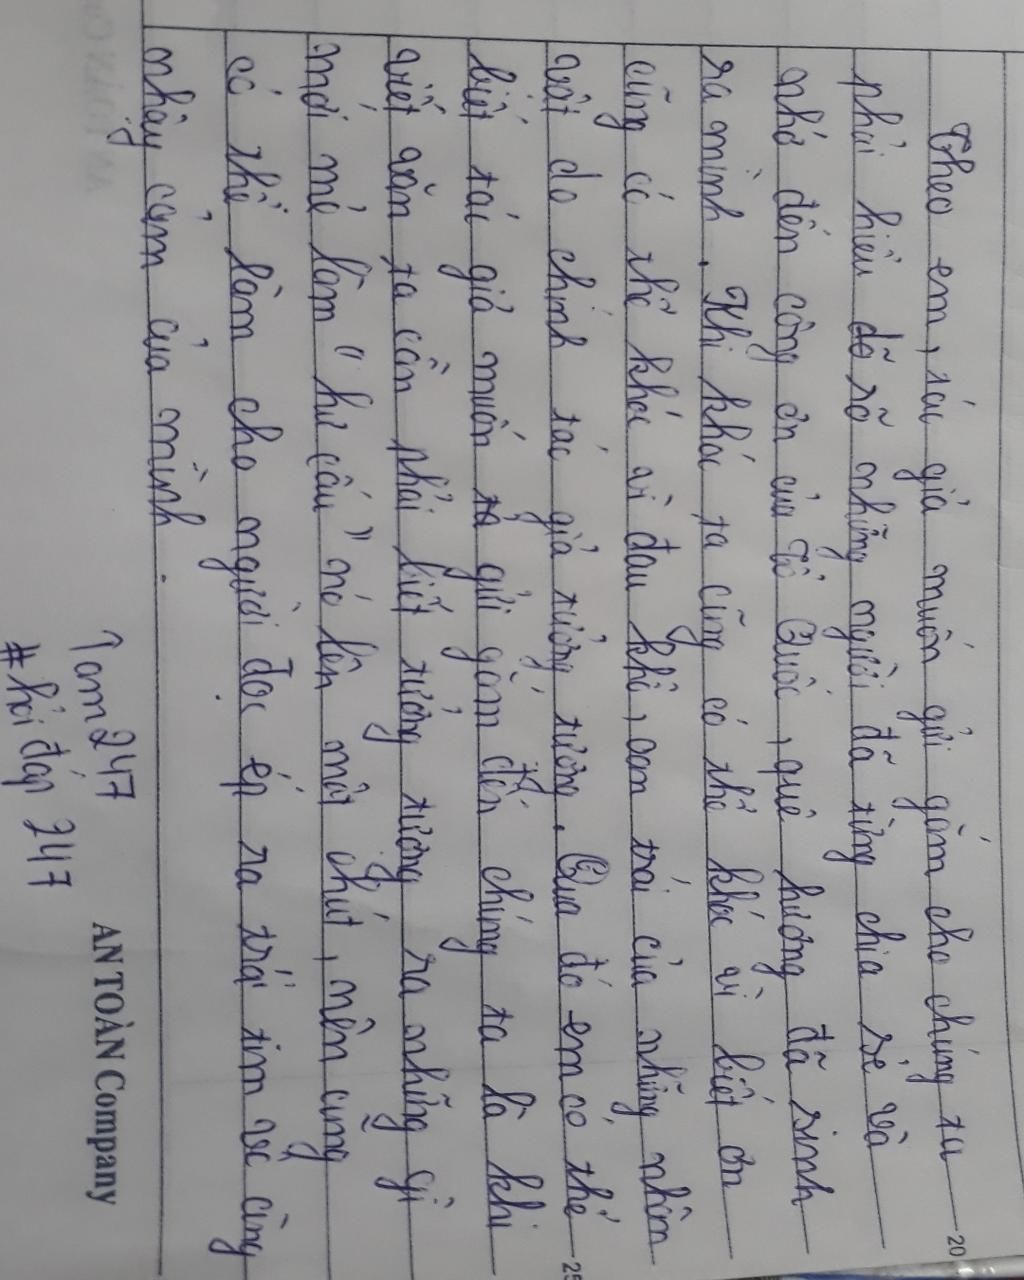 Theo em, tác giả muốn gửi gắm cho chúng ta
phải hiểu rõ những người đã từng chia sẻ và
nhớ đến công ơn của Tổ Quốc, quê hương đã sinh
ra mình. Khi khóc ta cũng có thể khóc vì biết ơn
cũng có thể khóc vì đau khổ, oan trái của những nhân
vật do chính tác giả tưởng tượng. Qua đó em có thể
biết tác giả muốn gửi gắm đến chúng ta là khi
viết văn ta cần phải biết tưởng tượng ra những gì
mới mẻ làm "hư cấu" nó lên một chút, nên cũng
có thể làm cho người đọc ép ra trái tim vô cùng
nhạy cảm của mình.
20
25
Tam247
#hỏi đáp 247
AN TOÀN Company